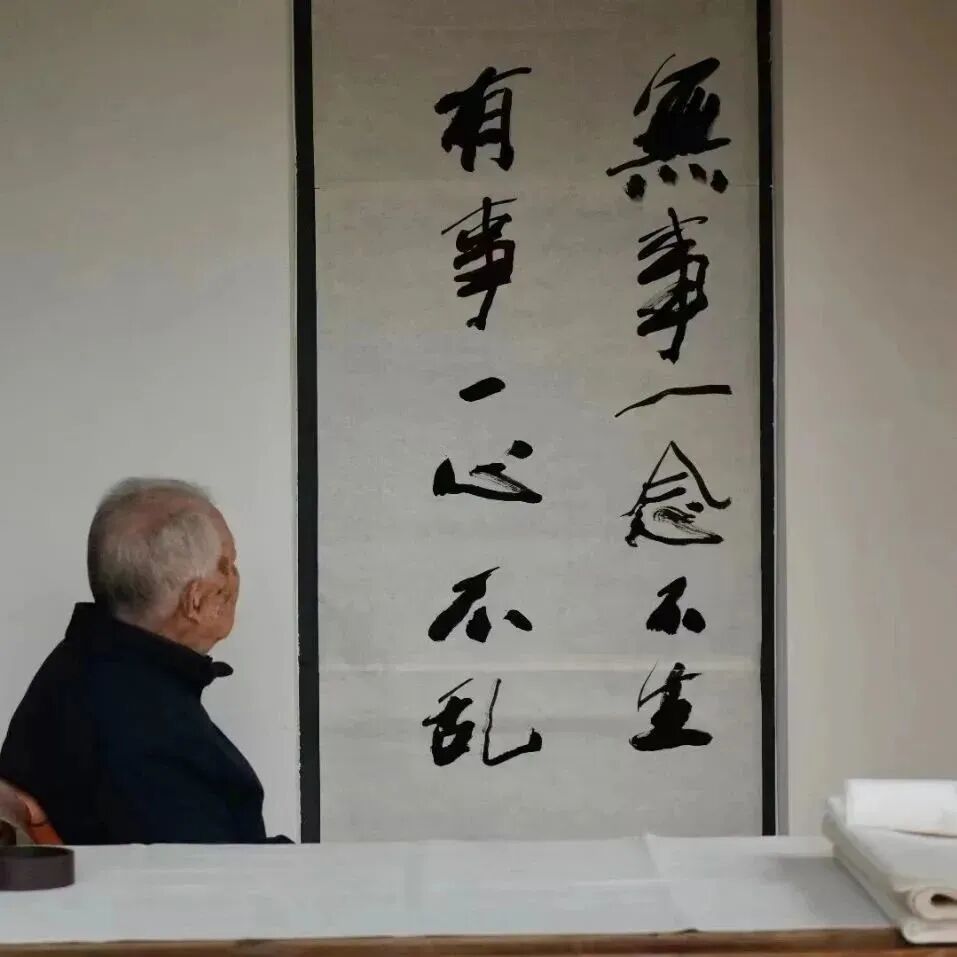 無事一念不生
有事一心不乱